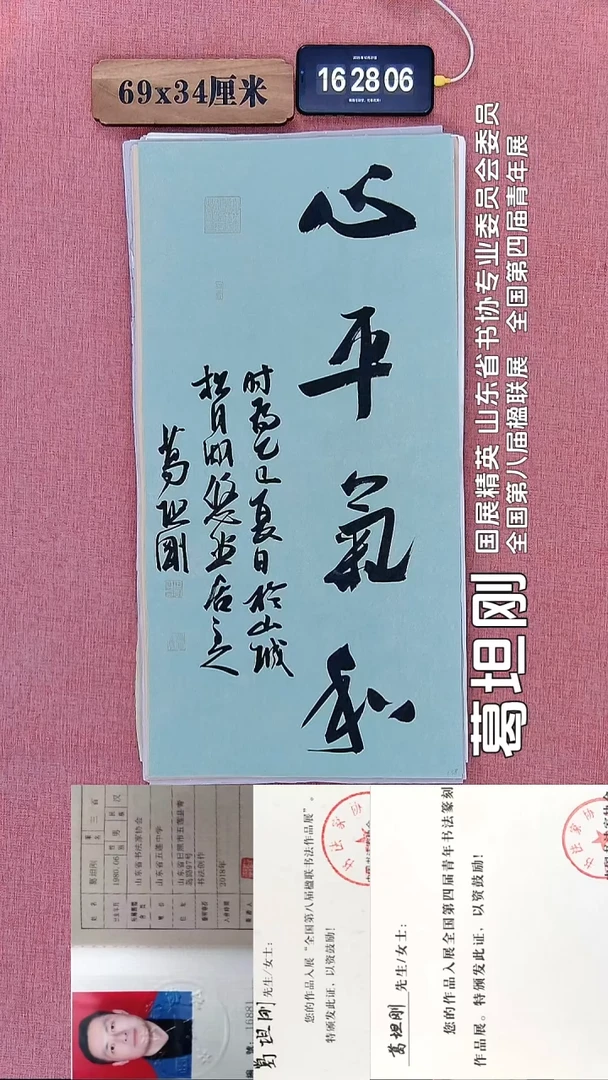 69x34厘米
16 28 06
心平氣和
时为乙巳夏日於山城
松月湖悠然居主人
葛坦刚
国展精英 山东省书协专业委员会委员
全国第八届楹联展 全国第四届青年展
葛坦刚
姓名 葛坦刚
性别 男
民族 汉
山东省书法家协会
山东省五莲中学
山东省日照市五莲县青
书法创作
2018年
16881
葛坦刚 先生/女士:
您的作品入展“全国第八届楹联书法作品展”。
特颁发此证，以资鼓励!
葛坦刚 先生/女士:
您的作品入展全国第四届青年书法篆刻
作品展。特颁发此证，以资鼓励!